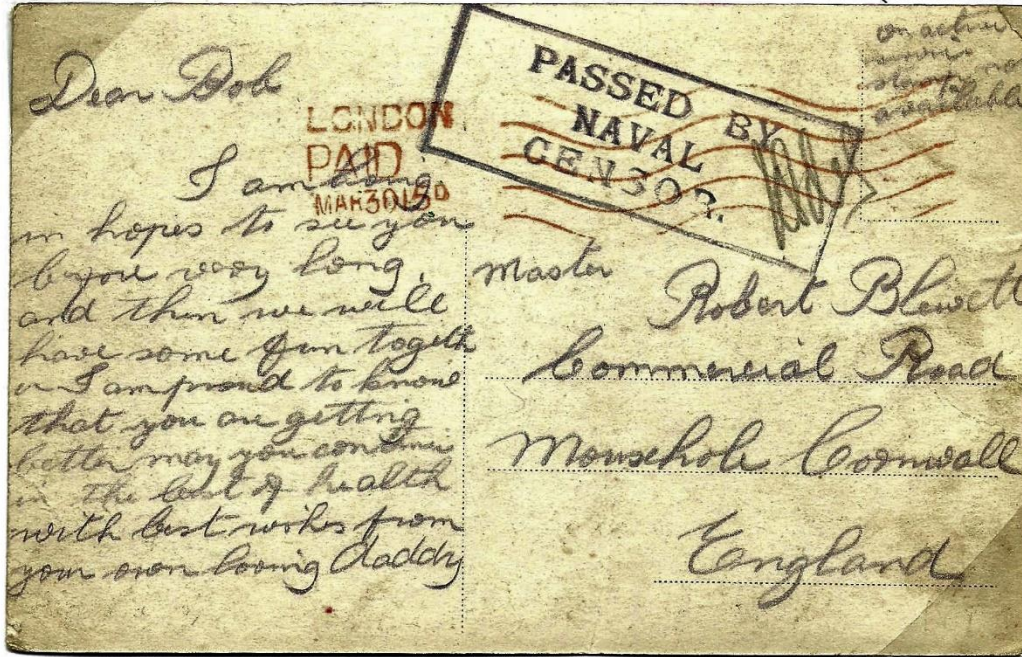 Dear Bob
I am living
in hopes to see you
before very long.
and then we will
have some fun togeth
er I am proud to know
that you are getting
better may you continue
in the best of health
with best wishes from
your own loving daddy
LONDON
PAID
MAR 30 15
PASSED BY
NAVAL
CENSOR.
on active
service
stamps not
available
Master
Robert Blewett
Commercial Road
Mousehole Cornwall
England